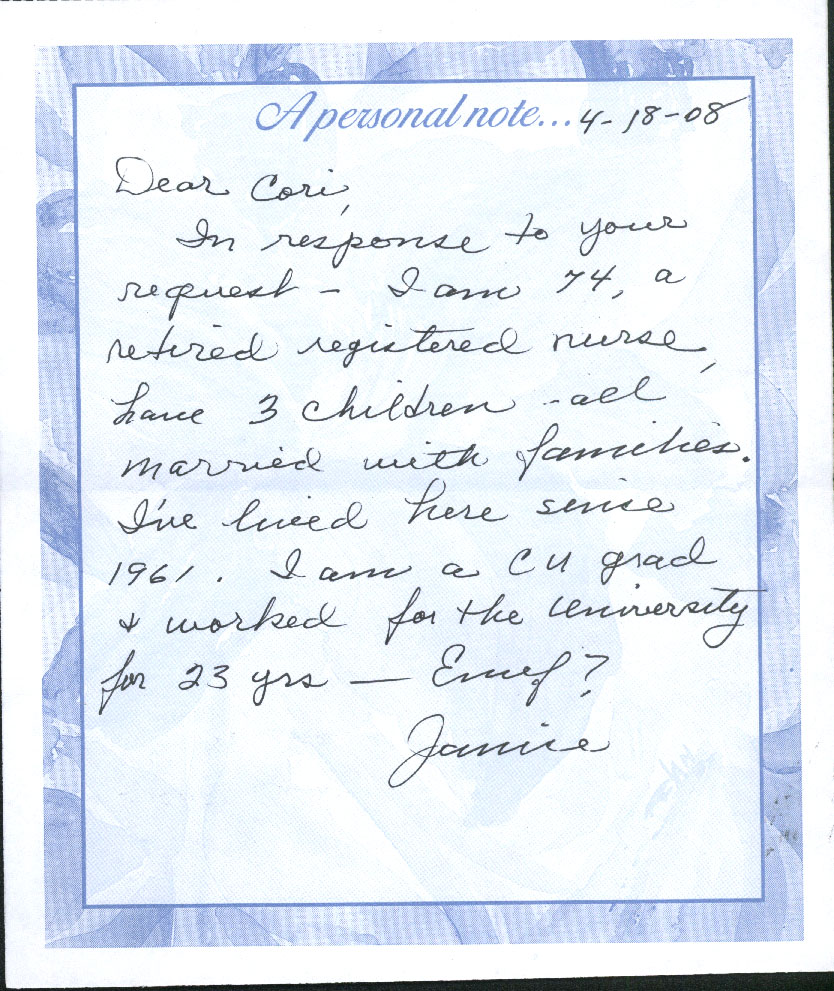 A personal note... 4-18-08
Dear Cori,
In response to your
request - I am 74, a
retired registered nurse,
have 3 children - all
married with families.
I've lived here since
1961. I am a CU grad
& worked for the University
for 23 yrs — Enuf?
Janice